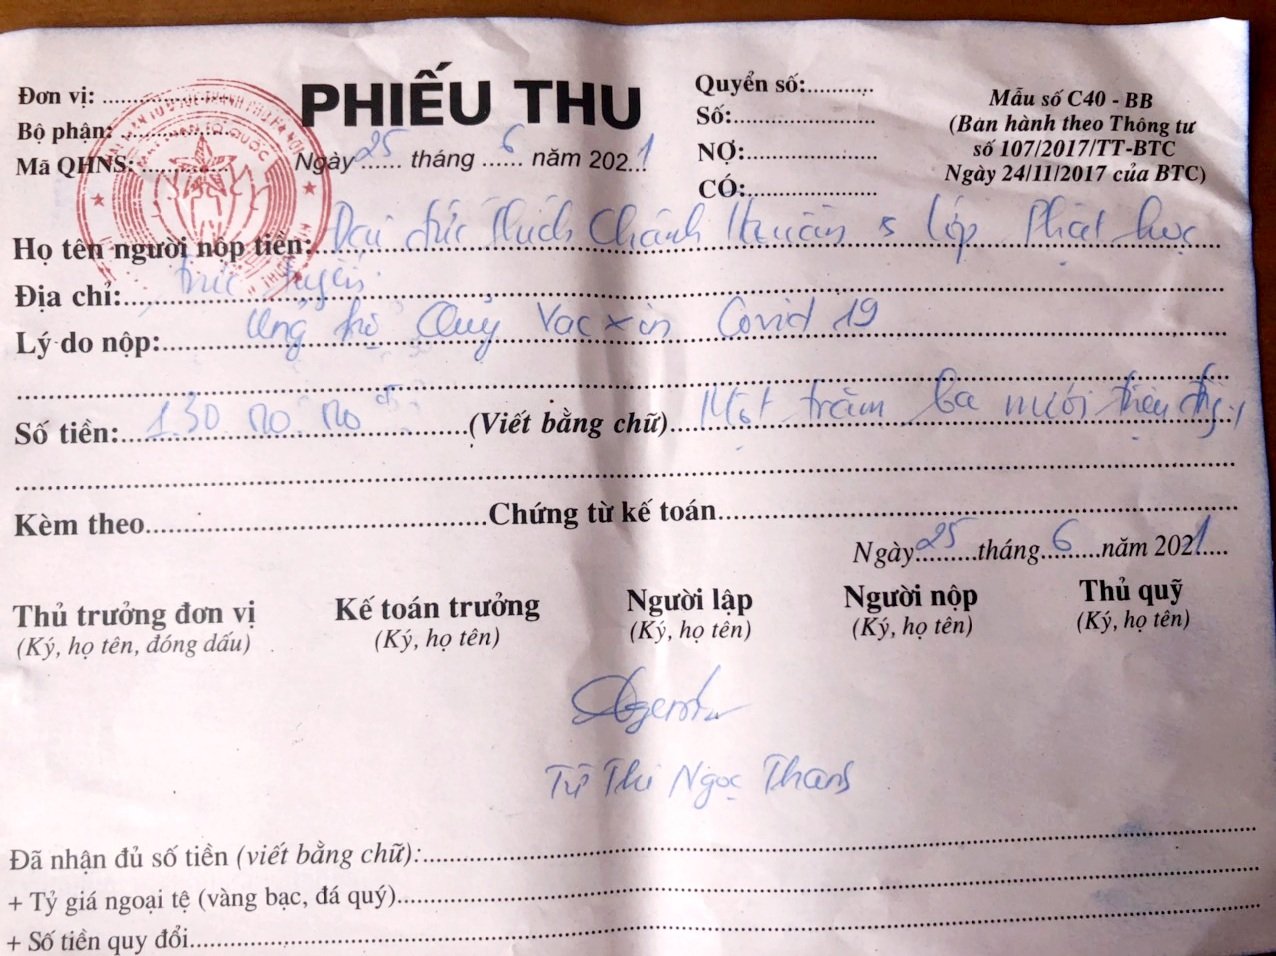 Đơn vị:
Bộ phận:
Mã QHNS:
PHIẾU THU
Ngày 25 tháng 6 năm 2021
Quyển số:
Số:
NỢ:
CÓ:
Mẫu số C40 - BB
(Ban hành theo Thông tư
số 107/2017/TT-BTC
Ngày 24/11/2017 của BTC)
Họ tên người nộp tiền: Đại đức Thích Chánh Thuần & lớp Phật học
Địa chỉ: trực tuyến
Lý do nộp: Ủng hộ Quỹ Vacxin Covid 19
Số tiền: 130 000 000đ (Viết bằng chữ) Một trăm ba mươi triệu đồng
Kèm theo Chứng từ kế toán
Ngày 25 tháng 6 năm 2021
Thủ trưởng đơn vị Kế toán trưởng Người lập Người nộp Thủ quỹ
(Ký, họ tên, đóng dấu) (Ký, họ tên) (Ký, họ tên) (Ký, họ tên) (Ký, họ tên)
Thị Ngọc Thanh
Đã nhận đủ số tiền (viết bằng chữ):
+ Tỷ giá ngoại tệ (vàng bạc, đá quý)
+ Số tiền quy đổi